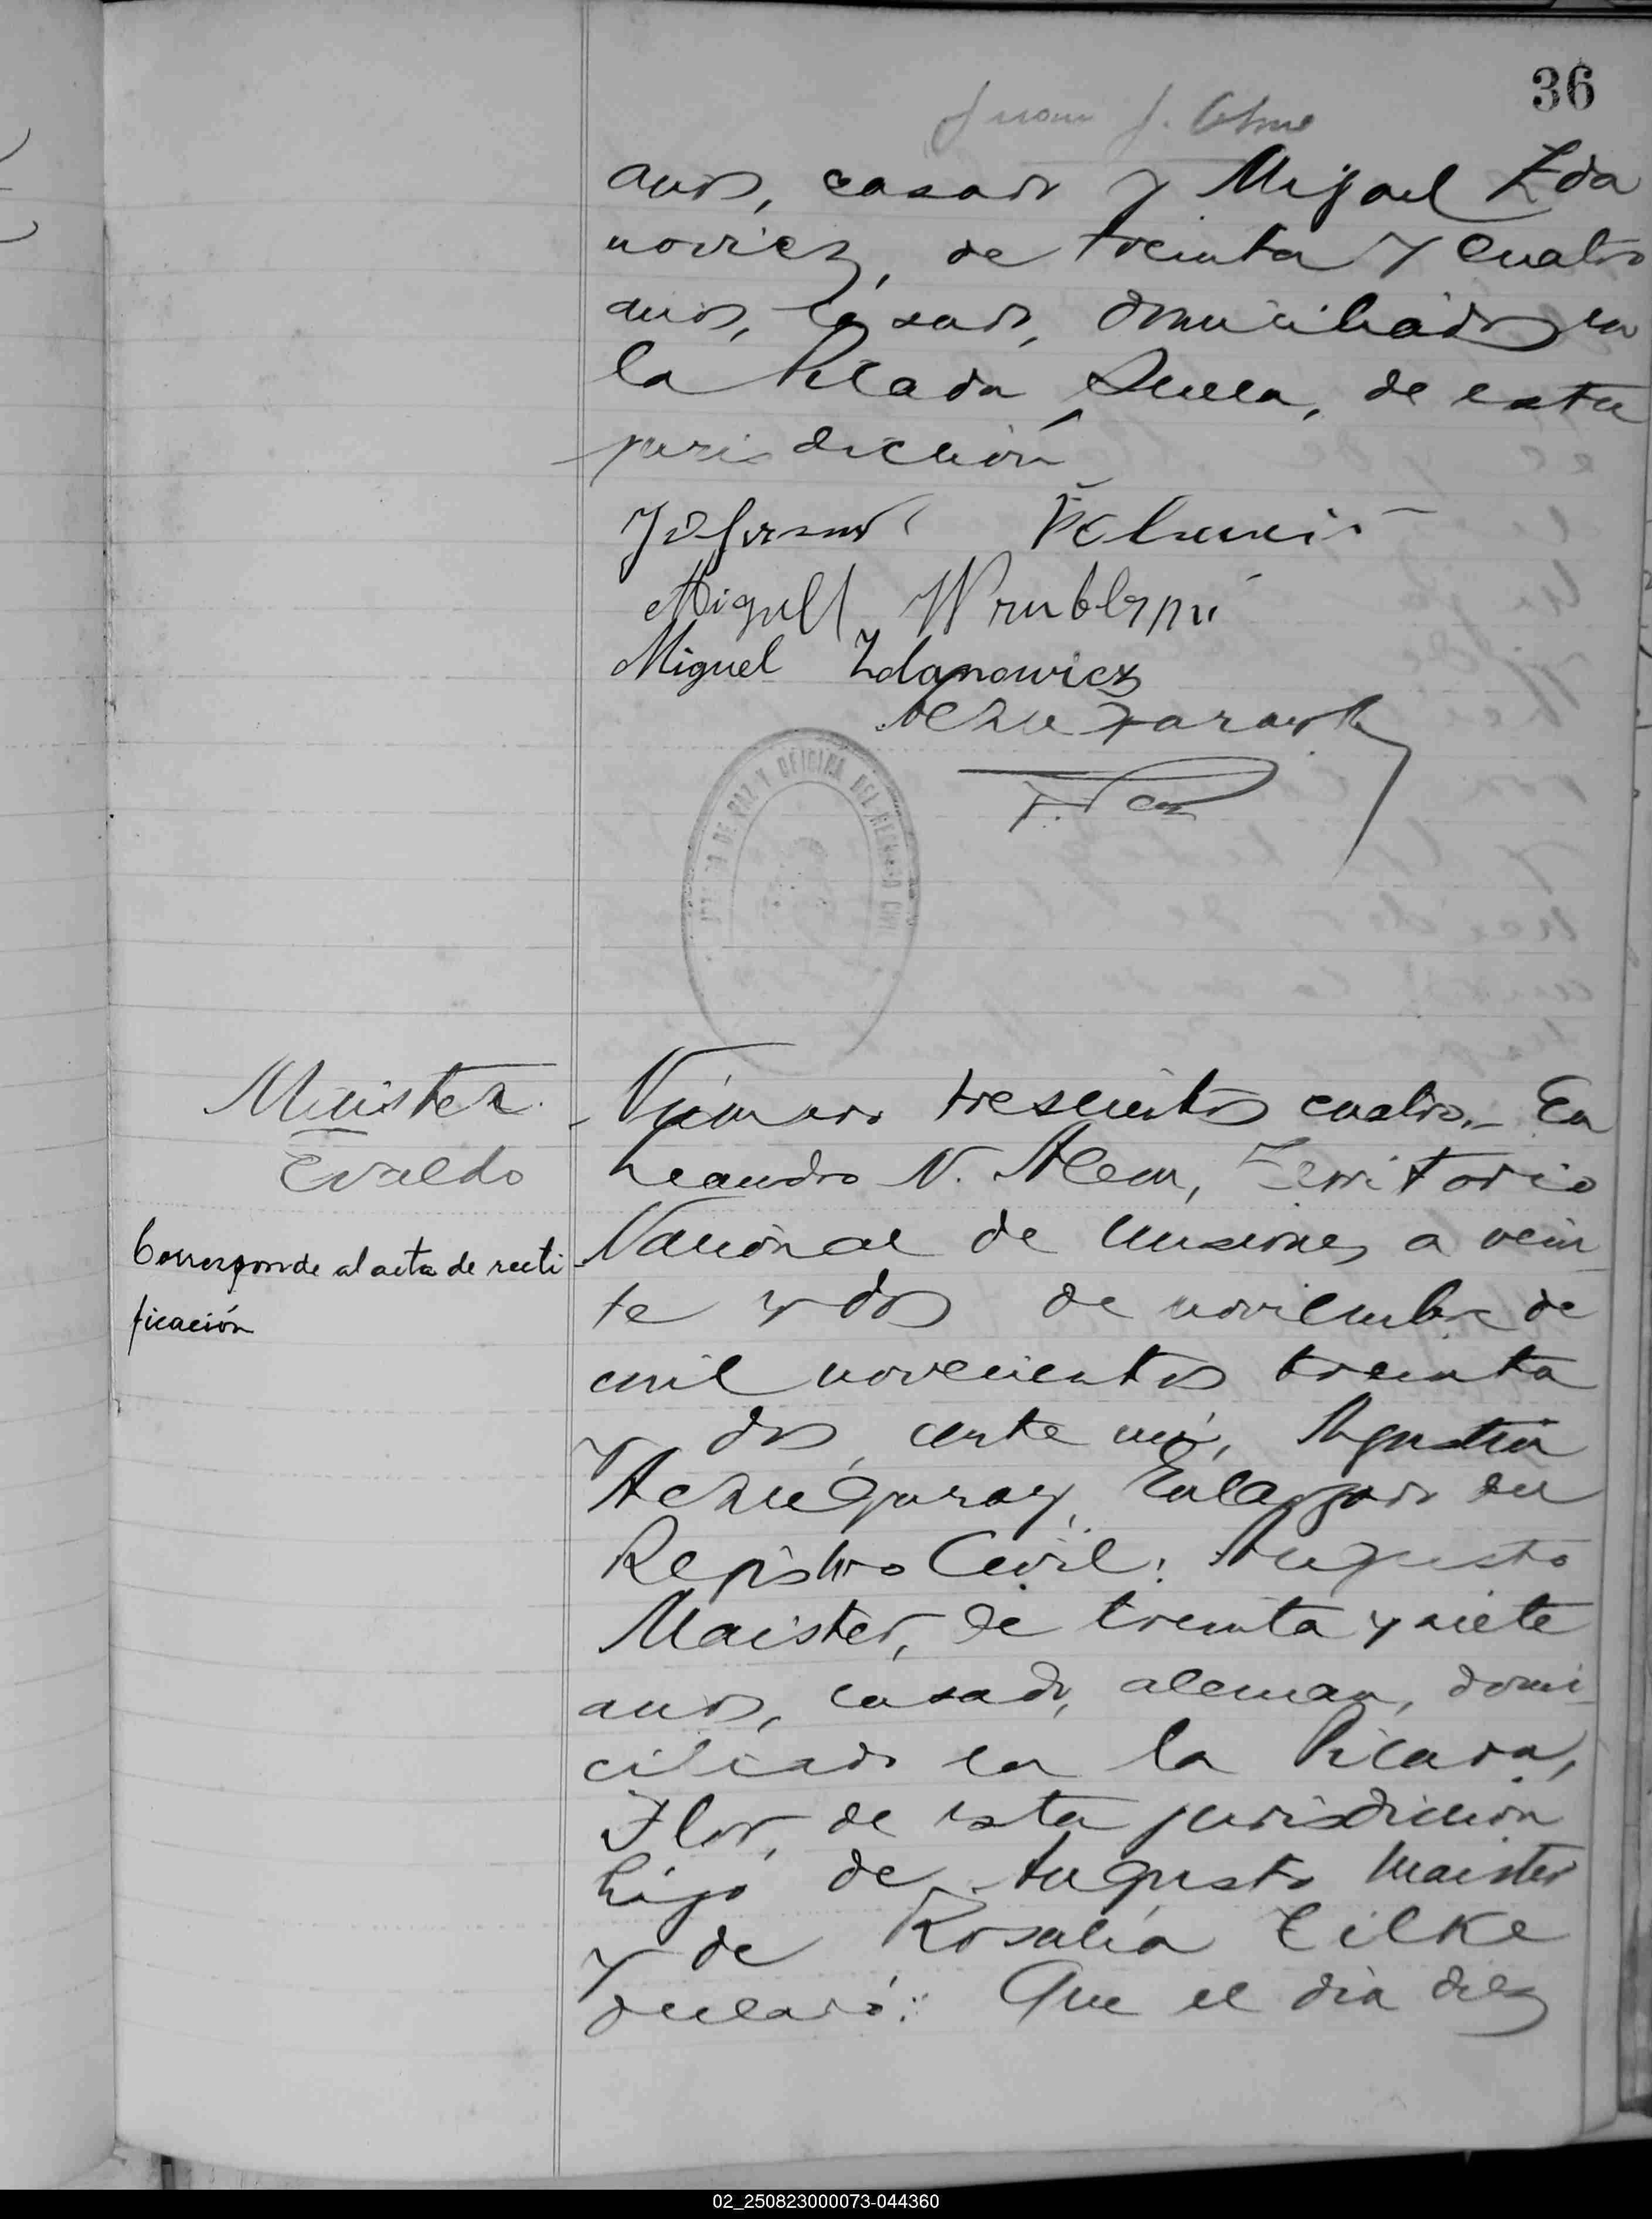 36
Juan J.
años, casado y Miguel Zda
noviez, de treinta y cuatro
años, casado, domiciliados en
la Picada de esta
jurisdicción
Miguel
Miguel Zdanowicz
Aczuegaray
JUZGADO DE PAZ Y OFICINA DEL REGISTRO CIVIL
Maister
Evaldo
Corresponde al acta de recti-
ficación
Número trescientos cuatro.- En
Leandro N. Alem, Territorio
Nacional de Misiones, a vein
te y dos de noviembre de
mil novecientos treinta
y dos, ante mí, Agustín
Aczuegaray, Encargado del
Registro Civil: Augusto
Maister, de treinta y siete
años, casado, aleman, domi-
ciliado en la Picada,
Flor, de esta jurisdicción
hijo de Augusto Maister
y de Rosalía Tilke
declaró: Que el día diez
02_250823000073-044360